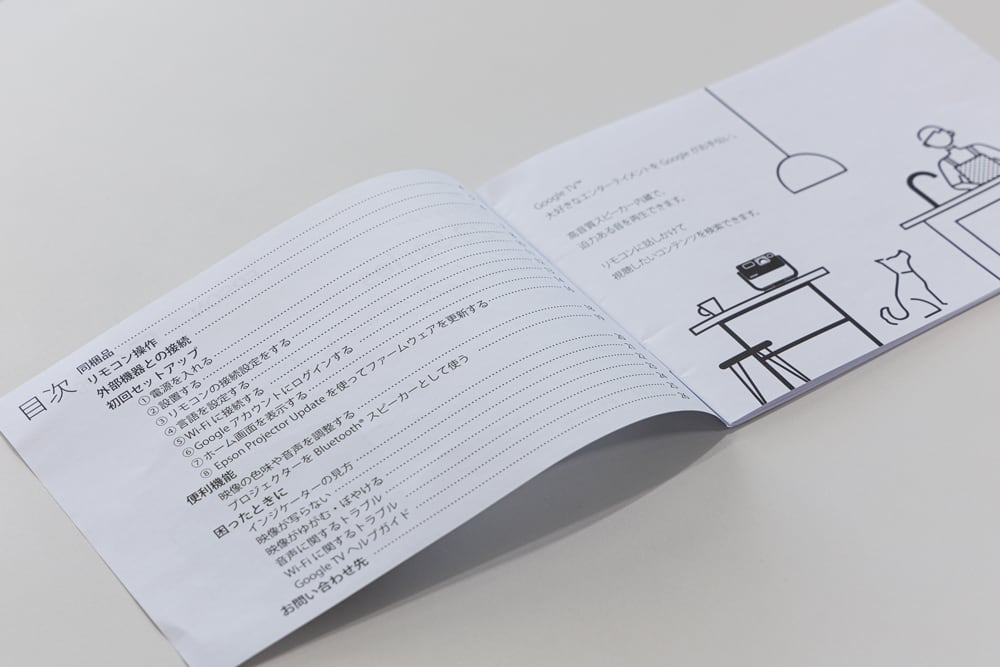 目次
同梱品
リモコン操作
外部機器との接続
初回セットアップ
①電源を入れる
②設置する
③リモコンの接続設定をする
④言語を設定する
⑤Wi-Fiに接続する
⑥Google アカウントにログインする
⑦ホーム画面を表示する
⑧Epson Projector Update を使ってファームウェアを更新する
便利機能
映像の色味や音声を調整する
プロジェクターを Bluetooth® スピーカーとして使う
困ったときに
インジケーターの見方
映像が写らない
映像がゆがむ・ぼやける
音声に関するトラブル
Wi-Fi に関するトラブル
Google TV ヘルプガイド
お問い合わせ先
Google TV™
大好きなエンターテイメントを Google がお手伝い。
高音質スピーカー内蔵で、
迫力ある音を再生できます。
リモコンに話しかけて
視聴したいコンテンツを検索できます。